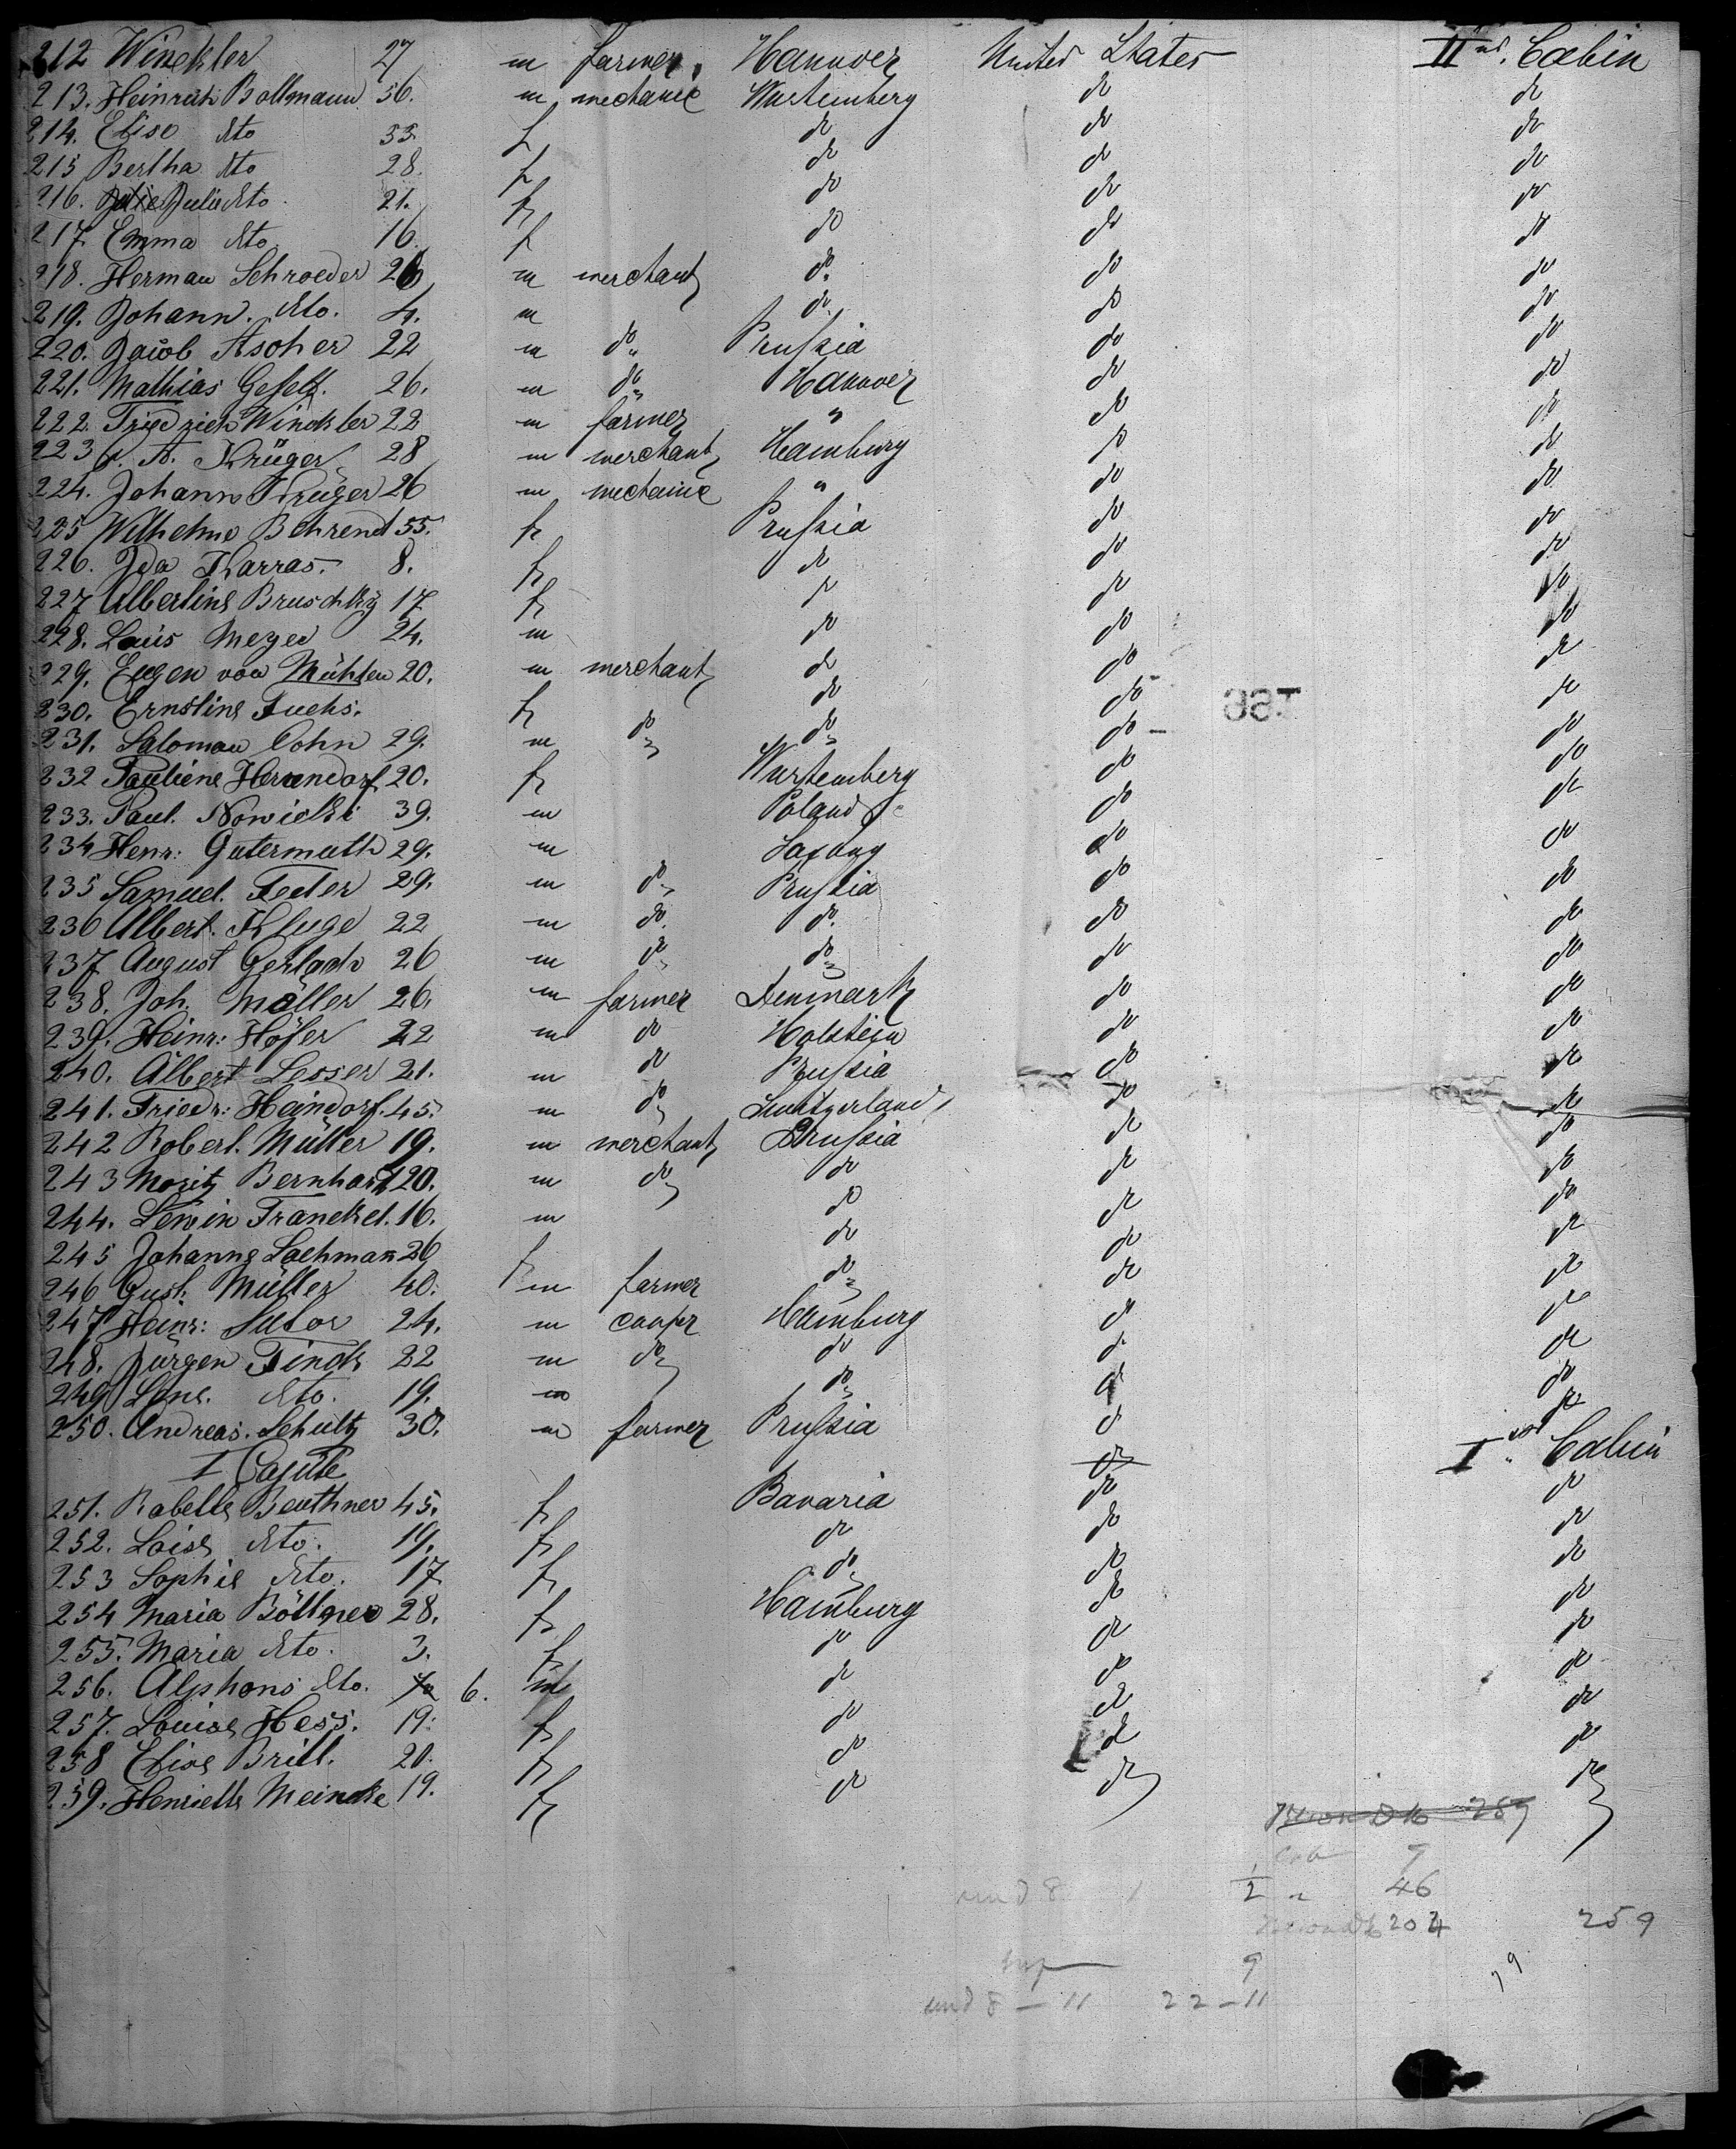 212 Winckler 27 m farmer, Hannover United States II nd. Cabin
213. Heinrich Bollmann 56. m mechanic Wurtemberg do do
214. Elise dto 53. f do do do
215 Bertha dto 28. f do do do
216. Julie dto. 21. f do do do
217. Emma dto 16 f do do do
218. Herman Schroeder 26 m merchant do. do do
219. Johann. dto. 4. m do. do do
220. Jacob Ascher 22 m do Prussia do do
221. Mathias Gesell. 26. m do Hannover do do
222. Friedrich Winckler 22 m farmer " do do
223 A. Krüger 28 m merchant Hamburg do do
224. Johann Krüger 26 m mechanic " do do
225 Wilhelme Behrend 55. f Prussia do do
226. Ida Karras. 8. f do do do
227 Albertine Bruschky 17 f do do do
228. Louis Meyer 24. m do do do
229. Eugen von Mühlen 20. m merchant do do do
230. Ernstine Fuchs. f do do do
231. Saloman Cohn 29. m do do do do
232 Pauliene Herendorf 20. f Wurtemberg do do
233. Paul. Nowicki 39. m Poland do do
234 Henr: Gutermuth 29. m Saxony do do
235 Samuel. Feder 29. m do Prussia do do
236 Albert. Kluge 22 m do. do. do do
237 August Gerlach 26 m do do do do
238. Joh. Möller 26. m farmer Denmark do do
239. Heinr: Höfer 22 m do Holstein do do
240. Albert Lesser 21. m do Prussia do do
241. Friedr: Heindorf. 45. m do Switzerland do do
242 Robert. Müller 19. m merchant Prussia do do
243 Moritz Bernhart 20. m do do do do
244. Lewin Franckel. 16. m do do do
245 Johanne Lachman 26 f do do do
246 Gust. Müller 40. m farmer do do do
247 Heinr: Sutor 24. m cooper Hamburg do do
248. Jürgen Finck 22 m do do do do
249 Lene. dto. 19. m do do do
250. Andreas. Schultz 30. m farmer Prussia do do
I Cajüte do I st. Cabin
251. Babette Beuthner 45. f Bavaria do do
252. Loise dto. 19. f do do do
253 Sophie dto. 17 f do do do
254 Maria Böttger 28. f Hamburg do do
255. Maria dto. 3. f do do do
256. Alphons dto. 6. m do do do
257. Louise Hess. 19. f do do do
258 Elise Brill. 20. f do do do
259. Henriette Meincke 19. f do do do
259
9
und 8 1 2 " 46
204 259
9
und 8 - 11 22 - 11